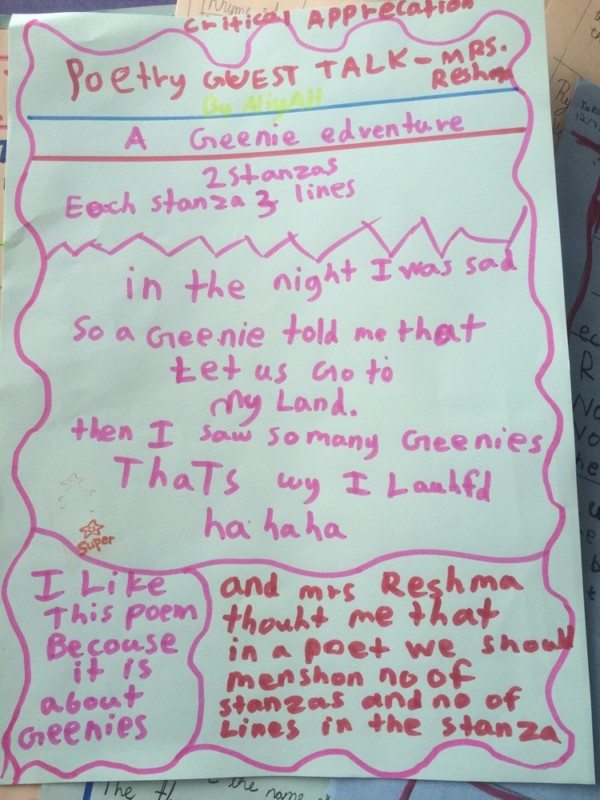 Critical Apprecation
Poetry GUEST TALK - MRS.
Reshma
By AliyAH
A Geenie edventure
2 stanzas
Each stanza 3 lines
in the night I was sad
So a Geenie told me that
Let us Go to
My Land.
then I saw so many Geenies
ThaTs wy I Lauhfd
ha ha ha
super
I Like
This poem
Becouse
it is
about
Geenies
and mrs Reshma
thouht me that
in a poet we should
menshon no of
stanzas and no of
Lines in the stanza